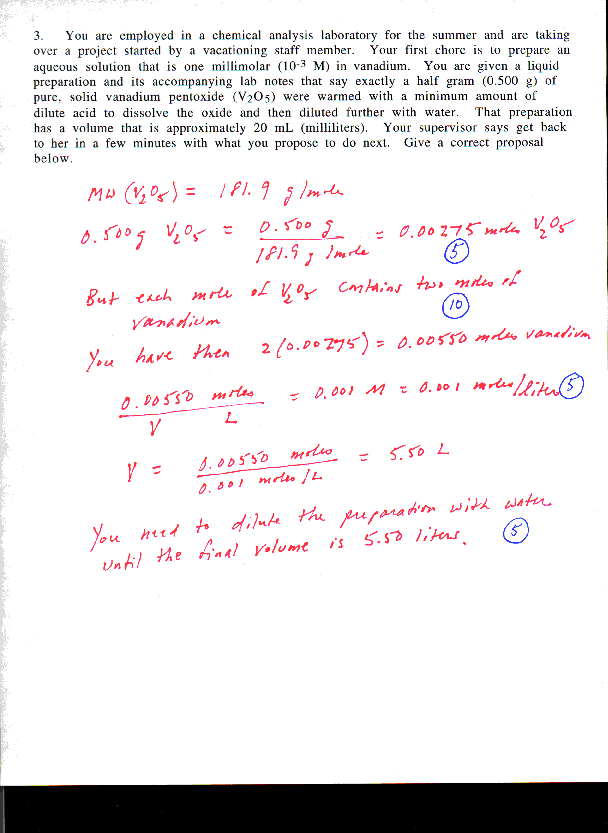 3. You are employed in a chemical analysis laboratory for the summer and are taking
over a project started by a vacationing staff member. Your first chore is to prepare an
aqueous solution that is one millimolar (10-3 M) in vanadium. You are given a liquid
preparation and its accompanying lab notes that say exactly a half gram (0.500 g) of
pure, solid vanadium pentoxide (V2O5) were warmed with a minimum amount of
dilute acid to dissolve the oxide and then diluted further with water. That preparation
has a volume that is approximately 20 mL (milliliters). Your supervisor says get back
to her in a few minutes with what you propose to do next. Give a correct proposal
below.
MW (V2O5) = 181.9 g/mole
0.500g V2O5 = 0.500 g / 181.9 g/mole = 0.00275 moles V2O5
5
But each mole of V2O5 contains two moles of
10
vanadium
You have then 2(0.00275) = 0.00550 moles vanadium
0.00550 moles / V L = 0.001 M = 0.001 moles/liter 5
V = 0.00550 moles / 0.001 moles/L = 5.50 L
You need to dilute the preparation with water
until the final volume is 5.50 liters. 5